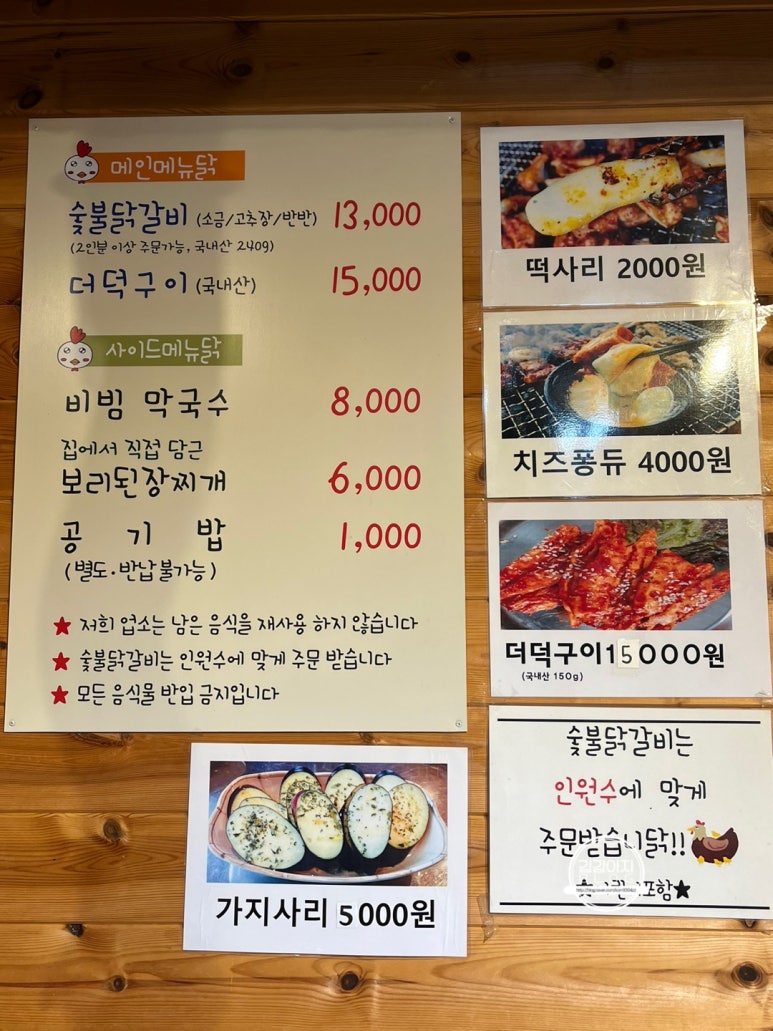 메인메뉴닭
숯불닭갈비 (소금/고추장/반반) 13,000
(2인분 이상 주문가능, 국내산 240g)
더덕구이 (국내산) 15,000
사이드메뉴닭
비빔 막국수 8,000
집에서 직접 담근
보리된장찌개 6,000
공기밥 1,000
(별도·반납불가능)
★ 저희 업소는 남은 음식을 재사용 하지 않습니다
★ 숯불닭갈비는 인원수에 맞게 주문 받습니다
★ 모든 음식물 반입 금지입니다
떡사리 2000원
치즈퐁듀 4000원
더덕구이15000원
(국내산 150g)
숯불닭갈비는
인원수에 맞게
주문받습니닭!!
포함★
가지사리 5000원